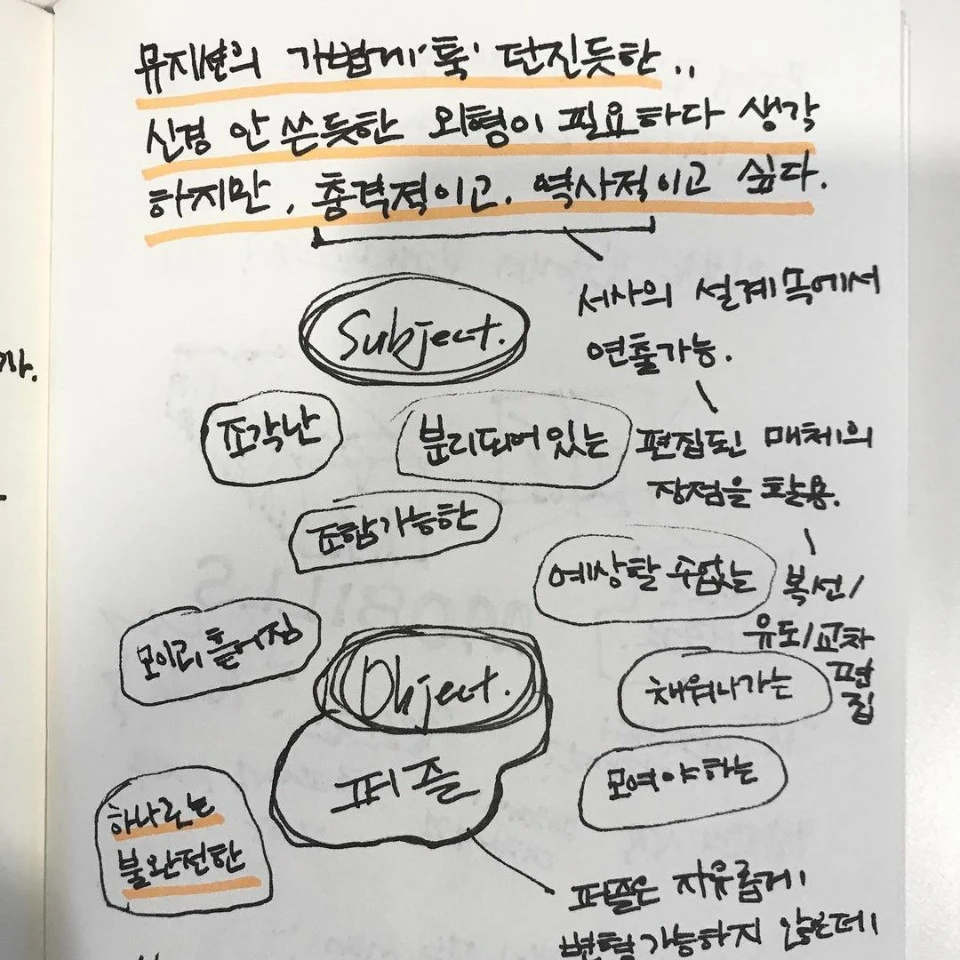 뮤지션의 가볍게 '툭' 던진듯한..
신경 안 쓴듯한 외형이 필요하다 생각
하지만, 충격적이고, 역사적이고 싶다.
서사의 설계 속에서
연출가능.
Subject.
조각난
분리되어 있는
편집된 매체의
장점을 활용.
조합가능한
예상할 수 없는
복선/
유도/교차
편
집
모이고 흩어짐
Object.
채워나가는
퍼즐
모여야하는
하나로는
불완전한
퍼즐은 자유롭게
변형가능하지 않은데
까.